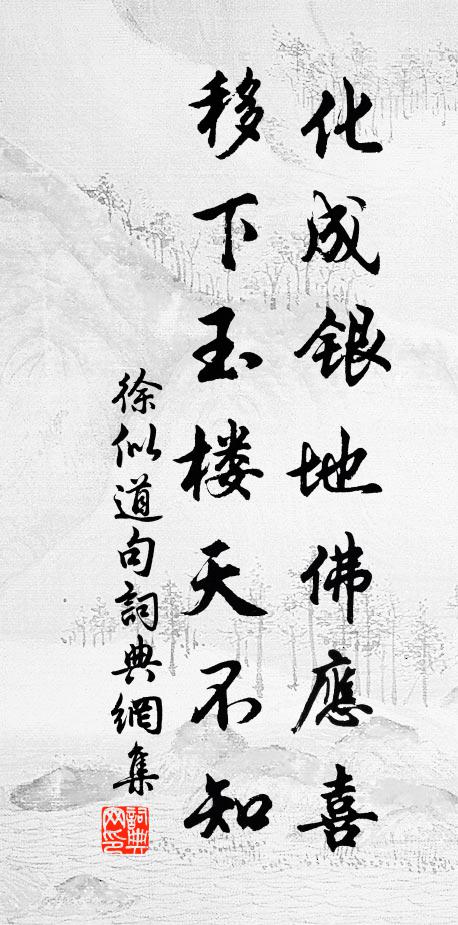 化成银地佛應喜
移下玉楼天不知
徐似道句詞典網集
詞典网印